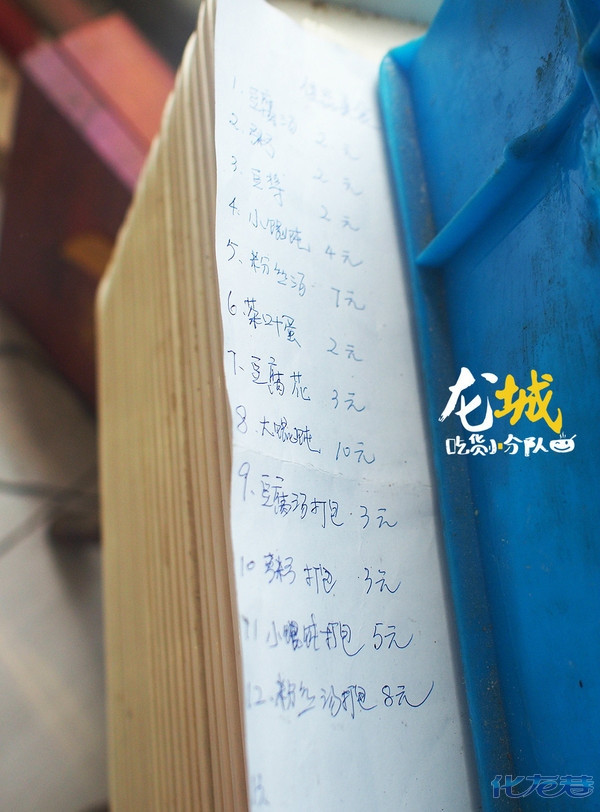 1、豆腐汤 2元
2、粥 2元
3、豆浆 2元
4、小馄饨 4元
5、粉丝汤 7元
6、茶叶蛋 2元
7、豆腐花 3元
8、大馄饨 10元
9、豆腐汤打包 3元
10 粥打包 3元
11 小馄饨打包 5元
12、粉丝汤打包 8元
龙城
吃货小分队
化龙巷